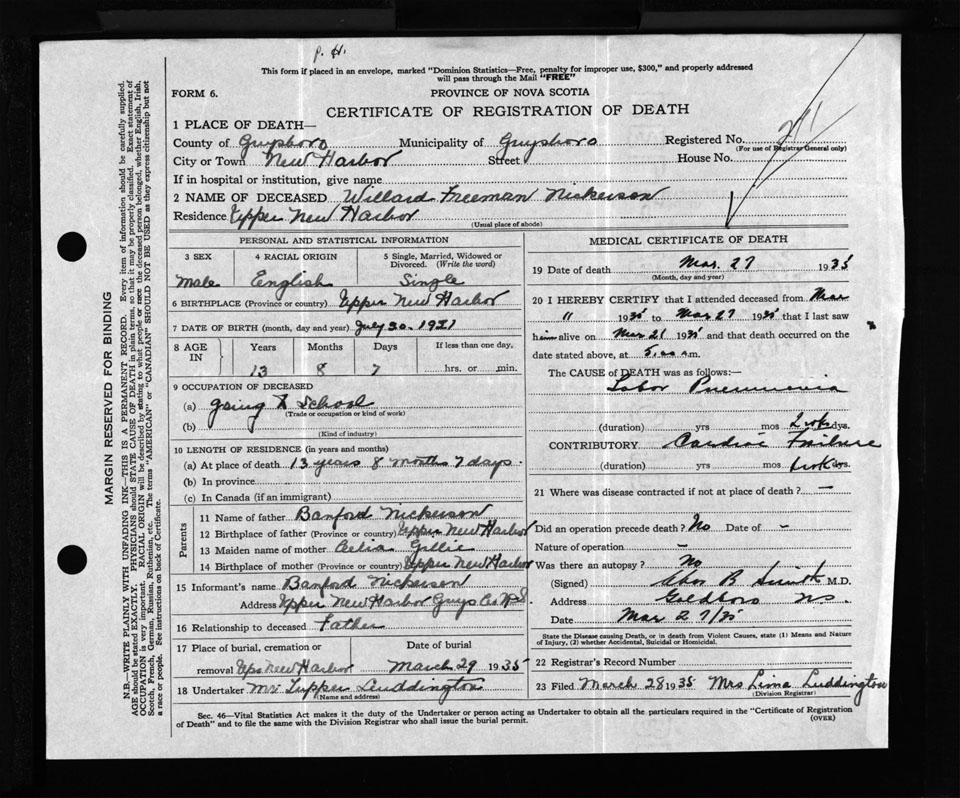 P. H.
This form if placed in an envelope, marked "Dominion Statistics—Free, penalty for improper use, $300," and properly addressed
will pass through the Mail "FREE"
FORM 6.
PROVINCE OF NOVA SCOTIA
CERTIFICATE OF REGISTRATION OF DEATH
1 PLACE OF DEATH—
County of Guysboro Municipality of Guysboro Registered No.
(For use of Registrar General only)
City or Town New Harbor Street House No.
If in hospital or institution, give name
2 NAME OF DECEASED Willard Freeman Nickerson
Residence Upper New Harbor
(Usual place of abode)
PERSONAL AND STATISTICAL INFORMATION
3 SEX
Male
4 RACIAL ORIGIN
English
5 Single, Married, Widowed or
Divorced. (Write the word)
Single
6 BIRTHPLACE (Province or country) Upper New Harbor
7 DATE OF BIRTH (month, day and year) July 20. 1921
8 AGE
IN
Years Months Days If less than one day,
13 8 7 hrs. or min.
9 OCCUPATION OF DECEASED
(a) going to School
(Trade or occupation or kind of work)
(b)
(Kind of industry)
10 LENGTH OF RESIDENCE (in years and months)
(a) At place of death 13 years 8 months 7 days.
(b) In province
(c) In Canada (if an immigrant)
Parents
11 Name of father Banford Nickerson
12 Birthplace of father (Province or country) Upper New Harbor
13 Maiden name of mother Celia Gillie
14 Birthplace of mother (Province or country) Upper New Harbor
15 Informant's name Banford Nickerson
Address Upper New Harbor Guys Co N.S.
16 Relationship to deceased Father
17 Place of burial, cremation or Date of burial
removal Up New Harbor March 29 1935
18 Undertaker Mr Tupper Luddington
(Name and address)
MEDICAL CERTIFICATE OF DEATH
19 Date of death Mar. 27 1935
(Month, day and year)
20 I HEREBY CERTIFY that I attended deceased from Mar
11 1935 to Mar 27 1935 that I last saw
him alive on Mar 21 1935 and that death occurred on the
date stated above, at 5.00 a.m.
The CAUSE of DEATH was as follows:—
Lobar Pneumonia
(duration) yrs mos 2 wk dys.
CONTRIBUTORY Cardiac Failure
(duration) yrs mos wk dys.
21 Where was disease contracted if not at place of death? —
Did an operation precede death? No Date of –
Nature of operation –
Was there an autopsy? No
(Signed) Chas B Smith M.D.
Address Goldboro N.S.
Date Mar 27/35
State the Disease causing Death, or in death from Violent Causes, state (1) Means and Nature
of Injury, (2) whether Accidental, Suicidal or Homicidal.
22 Registrar's Record Number
23 Filed March 28 1935 Mrs Lima Luddington
(Division Registrar)
Sec. 46—Vital Statistics Act makes it the duty of the Undertaker or person acting as Undertaker to obtain all the particulars required in the "Certificate of Registration
of Death" and to file the same with the Division Registrar who shall issue the burial permit.
(OVER)
MARGIN RESERVED FOR BINDING
N.B.—WRITE PLAINLY WITH UNFADING INK—THIS IS A PERMANENT RECORD. Every item of information should be carefully supplied.
AGE should be stated EXACTLY. PHYSICIANS should STATE CAUSE OF DEATH in plain terms, so that it may be properly classified. Exact statement of
OCCUPATION is very important. RACIAL ORIGIN will be described by stating to what people or race the deceased person belonged, whether English, Irish,
Scotch, French, German, Russian, Ruthenian, etc. The terms "AMERICAN" or "CANADIAN" SHOULD NOT BE USED as they express citizenship but not
a race or people. See instructions on back of Certificate.